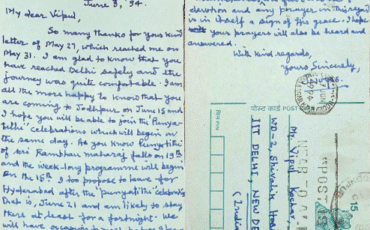 June 3, '94.
My dear Vipul,
So many thanks for your kind
letter of May 27, which reached me on
May 31. I am glad to know that you
have reached Delhi safely and the
journey was quite comfortable. I am
all the more happy to know that you
are coming to Jodhpur on June 15 and
I hope you will be able to join the 'Punya-
celebrations which will begin on
the same day. As you know
of Sri maharaj falls on 19th
and the week-long programme will begin
on the 15th. I too propose to leave for
Hyderabad after the 'punyatithi' celebrations
that is, June 21 and am likely to stay
there at least for a fortnight. We
will have
devotion and any prayer in this regard
is in itself a sign of His grace. I hope
your prayers will also be heard and
answered.
With kind regards,
Yours Sincerely,
पोस्ट कार्ड POST
Mr. Vipul
WD-2, Shivalik Hos
IIT DELHI, NEW DE
(India
15